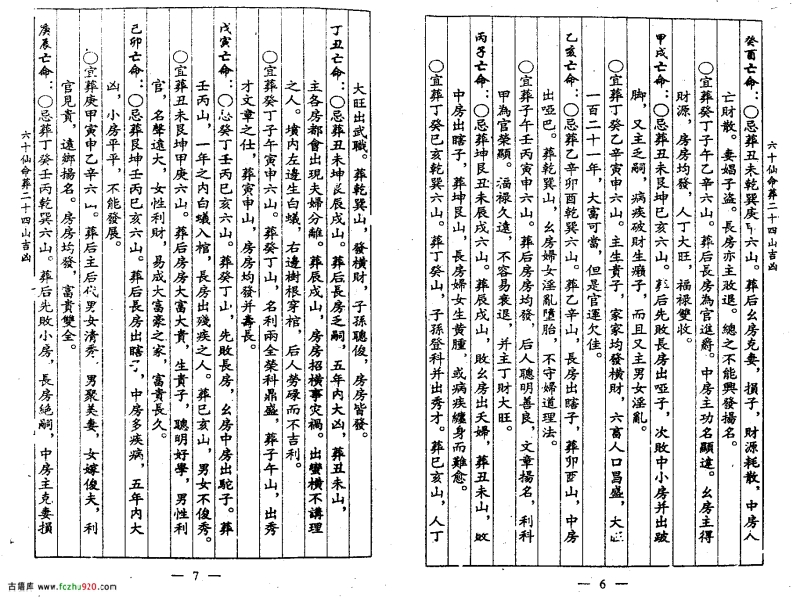 六十仙命葬二十四山吉凶
癸酉亡命：○忌葬丑未乾巽庚　六山。葬后幺房克妻，損子，財源耗散，中房人
亡財散。妻娼子盜。長房亦主敗退。總之不能興發揚名。
○宜葬癸丁子午乙辛六山。葬后長房為官進爵。中房主功名顯達。幺房主得
財源，房房均發，人丁大旺，福祿雙收。
甲戌亡命：○忌葬丑未艮坤巳亥六山。葬后先敗長房出啞子，次敗中小房并出跛
脚，又主乏嗣，病疾破財生癩子，而且又主男女淫亂。
○宜葬丁癸乙辛寅申六山。主生貴子，家家均發橫財，六畜人口昌盛，大
一百二十一年，大富可當，但是官運欠佳。
乙亥亡命：○忌葬乙辛卯酉乾巽六山。葬乙辛山，長房出瞎子，葬卯酉山，中房
出啞巴。葬乾巽山，幺房婦女淫亂墮胎，不守婦道理法。
○宜葬子午壬丙寅申六山。葬后房房均發，后人聰明善良，文章揚名，利科
甲為官榮顯。福祿久遠，不容易衰退，并主丁財大旺。
丙子亡命：○忌葬坤艮丑未辰戌六山。葬辰戌山，敗幺房出夭婦，葬丑未山，敗
中房出瞎子，葬坤艮山，長房婦女生黄腫，或病疾纏身而難愈。
○宜葬丁癸巳亥乾巽六山。葬丁癸山，子孫登科并出秀才。葬巳亥山，人丁
— 6 —
大旺出武職。葬乾巽山，發橫財，子孫聰俊，房房皆發。
丁丑亡命：○忌葬丑未坤艮辰戌山。葬后長房乏嗣，五年内大凶，葬丑未山，
主各房都會出現夫婦分離。葬辰戌山，房房招橫事灾禍。出蠻橫不講理
之人。墳内左邊生白蟻，右邊樹根穿棺，后人勞碌而不吉利。
○宜葬癸丁子午寅申六山。葬癸丁山，名利兩全榮科鼎盛，葬子午山，出秀
才文章之仕，葬寅申山，房房均發并壽長。
戊寅亡命：○忌癸丁壬丙巳亥六山。葬癸丁山，先敗長房，幺房中房出駝子。葬
壬丙山，一年之内白蟻入棺，長房出殘疾之人。葬巳亥山，男女不俊秀。
○宜葬丑未艮坤甲庚六山。葬后房房大富大貴，生貴子，聰明好學，男性利
官，名聲遠大，女性利財，易成大富豪之家，富貴長久。
己卯亡命：○忌葬艮坤壬丙巳亥六山。葬后長房出瞎子，中房多疾病，五年内大
凶，小房平平，不能發展。
○宜葬庚甲寅申乙辛六山。葬后主后代男女清秀，男聚美妻，女嫁俊夫，利
官見貴，遠鄉揚名。房房均發，富貴雙全。
庚辰亡命：○忌葬丁癸壬丙乾巽六山。葬后先敗小房，長房絕嗣，中房主克妻損
六十仙命葬二十四山吉凶
— 7 —
古籍库 www.fczhu920.com